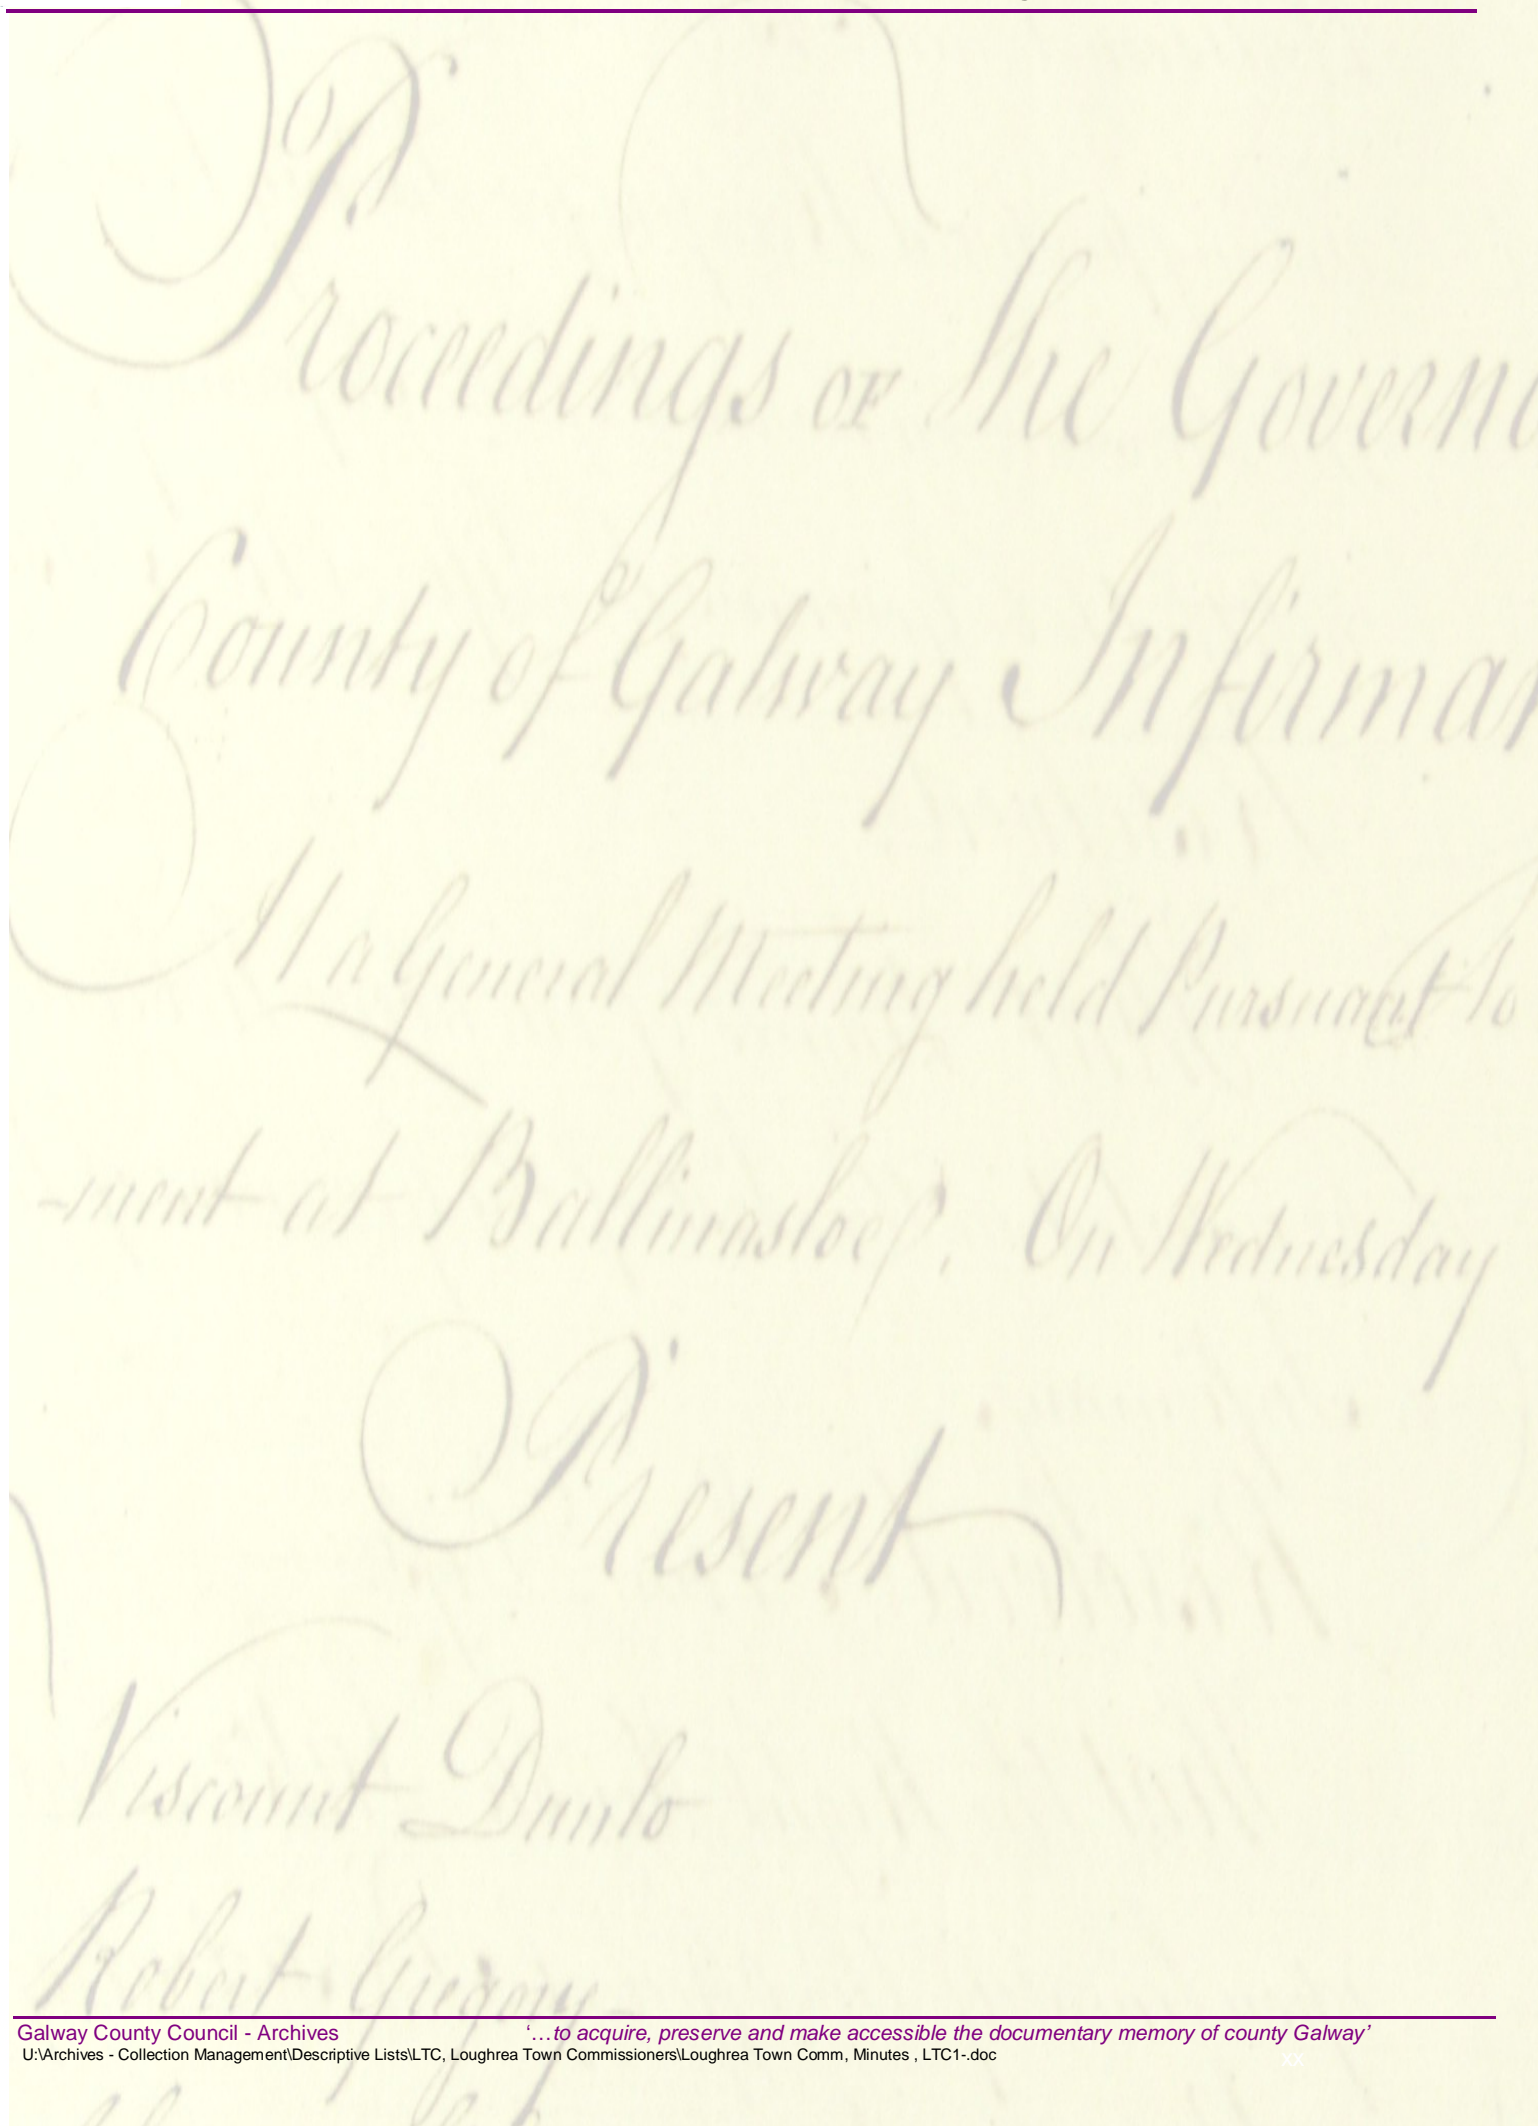 Proceedings OF The Govern
County of Galway Infirmar
At a General Meeting held Pursuant to
-ment at Ballinasloe. On Wednesday
Present
Viscount Dunlo
Robert Gregory
Galway County Council - Archives ‘…to acquire, preserve and make accessible the documentary memory of county Galway’
U:\Archives - Collection Management\Descriptive Lists\LTC, Loughrea Town Commissioners\Loughrea Town Comm, Minutes , LTC1-.doc
xx